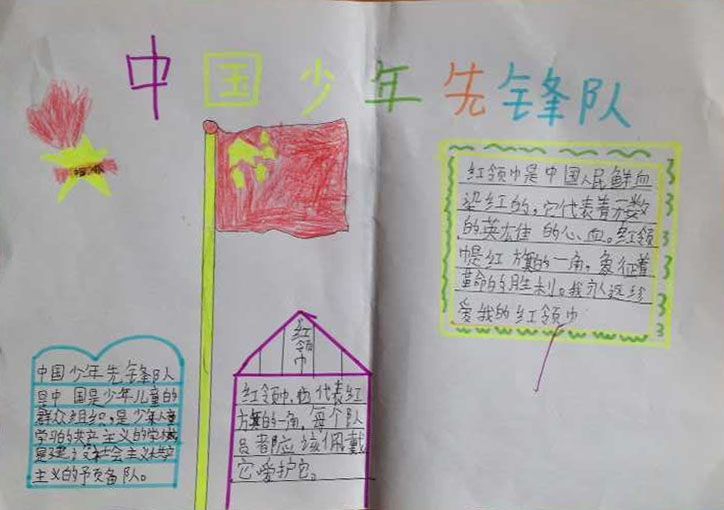 中国少年先锋队
红领巾是中国人民鲜血
染红的，它代表着无数
的英雄 的心血。红领
巾是红 旗的一角，象征着
革命的胜利。我永远珍
爱我的红领巾
红领巾
中国少年先锋队
是中 国是少年儿童的
群众组织，是少年儿童
学习的共产主义的学校
是建设社会主义共产
主义的预备队。
红领巾 代表红
旗的一角，每个队
员都应该佩戴
它爱护它。